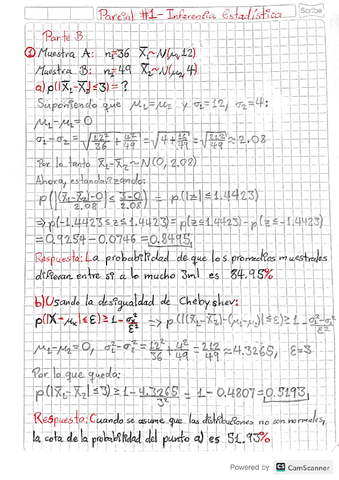 Parcial #1 - Inferencia Estadística
Scribe
Parte B
① Muestra A: n₁=36 X̄₁~N(μ₁,12)
Muestra B: n₂=49 X̄₂~N(μ₂,4)
a) p(|X̄₁-X̄₂|≤3)=?
Suponiendo que μ₁=μ₂ y σ₁=12, σ₂=4:
μ₁-μ₂=0
σ₁-σ₂=√(12²/36+4²/49)=√(4+16/49)=√(212/49)≈2.08
Por lo tanto X̄₁-X̄₂~N(0,2.08)
Ahora, estandarizando:
p(|(X̄₁-X̄₂)-0/2.08|≤3-0/2.08)= p(|z|≤1.4423)
⇒p(-1.4423≤z≤1.4423)=p(z≤1.4423)-p(z≤-1.4423)
=0.9254-0.0746=0.8495
Respuesta: La probabilidad de que los promedios muestrales
difieran entre si a lo mucho 3ml es 84.95%
b) Usando la desigualdad de Chebyshev:
p(|X-μₓ|≤ε)≥1-σₓ²/ε² ⇒ p(|(X̄₁-X̄₂)-(μ₁-μ₂)|≤ε)≥1-σ₁²-σ₂²/ε²
μ₁-μ₂=0, σ₁²-σ₂²=12²/36+4²/49=212/49≈4.3265, ε=3
Por lo que queda:
p(|X̄₁-X̄₂|≤3)≥1-4.3265/3²=1-0.4807=0.5193
Respuesta: Cuando se asume que las distribuciones no son normales,
la cota de la probabilidad del punto a) es 51.93%
Powered by CS CamScanner